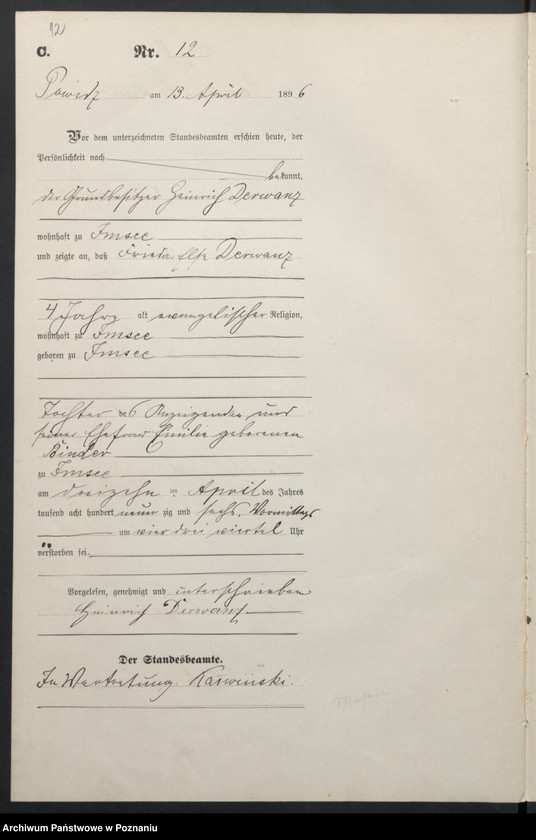 12
C.
Nr. 12
Powidz am 13. April 1896
Vor dem unterzeichneten Standesbeamten erschien heute, der
Persönlichkeit nach
bekannt,
der Grundbesitzer Heinrich Derwanz
wohnhaft zu Imsee
und zeigte an, daß Frieda Else Derwanz
4 Jahre alt evangelischer Religion,
wohnhaft zu Imsee
geboren zu Imsee
Tochter des Anzeigenden und
seiner Ehefrau Emilie geborenen
Binder
zu Imsee
am dreizehn April des Jahres
tausend acht hundert neun zig und sechs, Vormittags
um vier drei viertel Uhr
verstorben sei.
Vorgelesen, genehmigt und unterschrieben
Heinrich Derwanz
Der Standesbeamte.
In Vertretung. Karwinski.
Archiwum Państwowe w Poznaniu